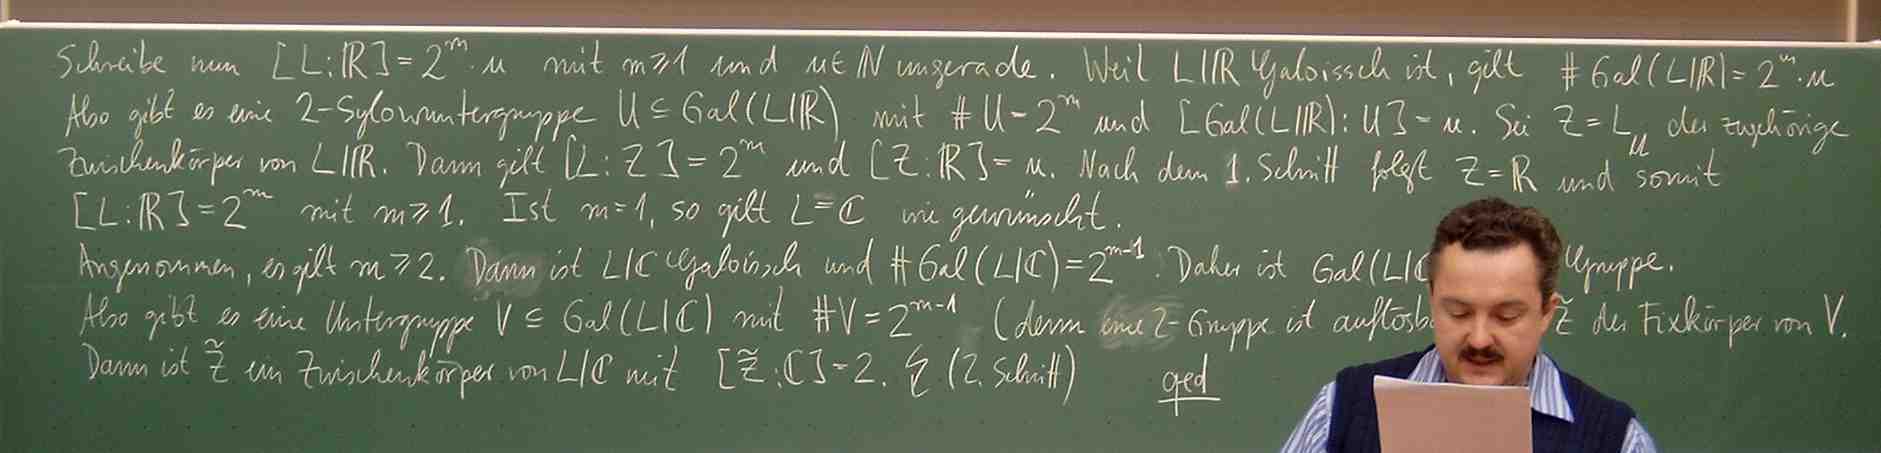 Schreibe nun [L:ℝ]=2^m·u mit m≥1 und u∈ℕ ungerade. Weil L|ℝ Galoissch ist, gilt #Gal(L|ℝ)=2^m·u
Also gibt es eine 2-Sylowuntergruppe U ⊆ Gal(L|ℝ) mit #U=2^m und [Gal(L|ℝ):U]=u. Sei Z=L_U der zugehörige
Zwischenkörper von L|ℝ. Dann gilt [L:Z]=2^m und [Z:ℝ]=u. Nach dem 1. Schritt folgt Z=ℝ und somit
[L:ℝ]=2^m mit m≥1. Ist m=1, so gilt L=ℂ wie gewünscht.
Angenommen, es gilt m≥2. Dann ist L|ℂ Galoissch und #Gal(L|ℂ)=2^{m-1}. Daher ist Gal(L|ℂ Gruppe.
Also gibt es eine Untergruppe V ⊆ Gal(L|ℂ) mit #V=2^{m-1} (denn eine 2-Gruppe ist auflösb Z̃ der Fixkörper von V.
Dann ist Z̃ ein Zwischenkörper von L|ℂ mit [Z̃:ℂ]=2. ↯ (2. Schritt) qed